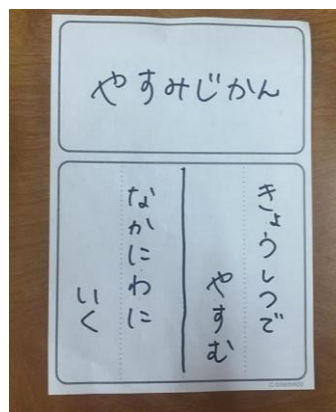 やすみじかん
きょうしつで
やすむ
なかにわに
いく